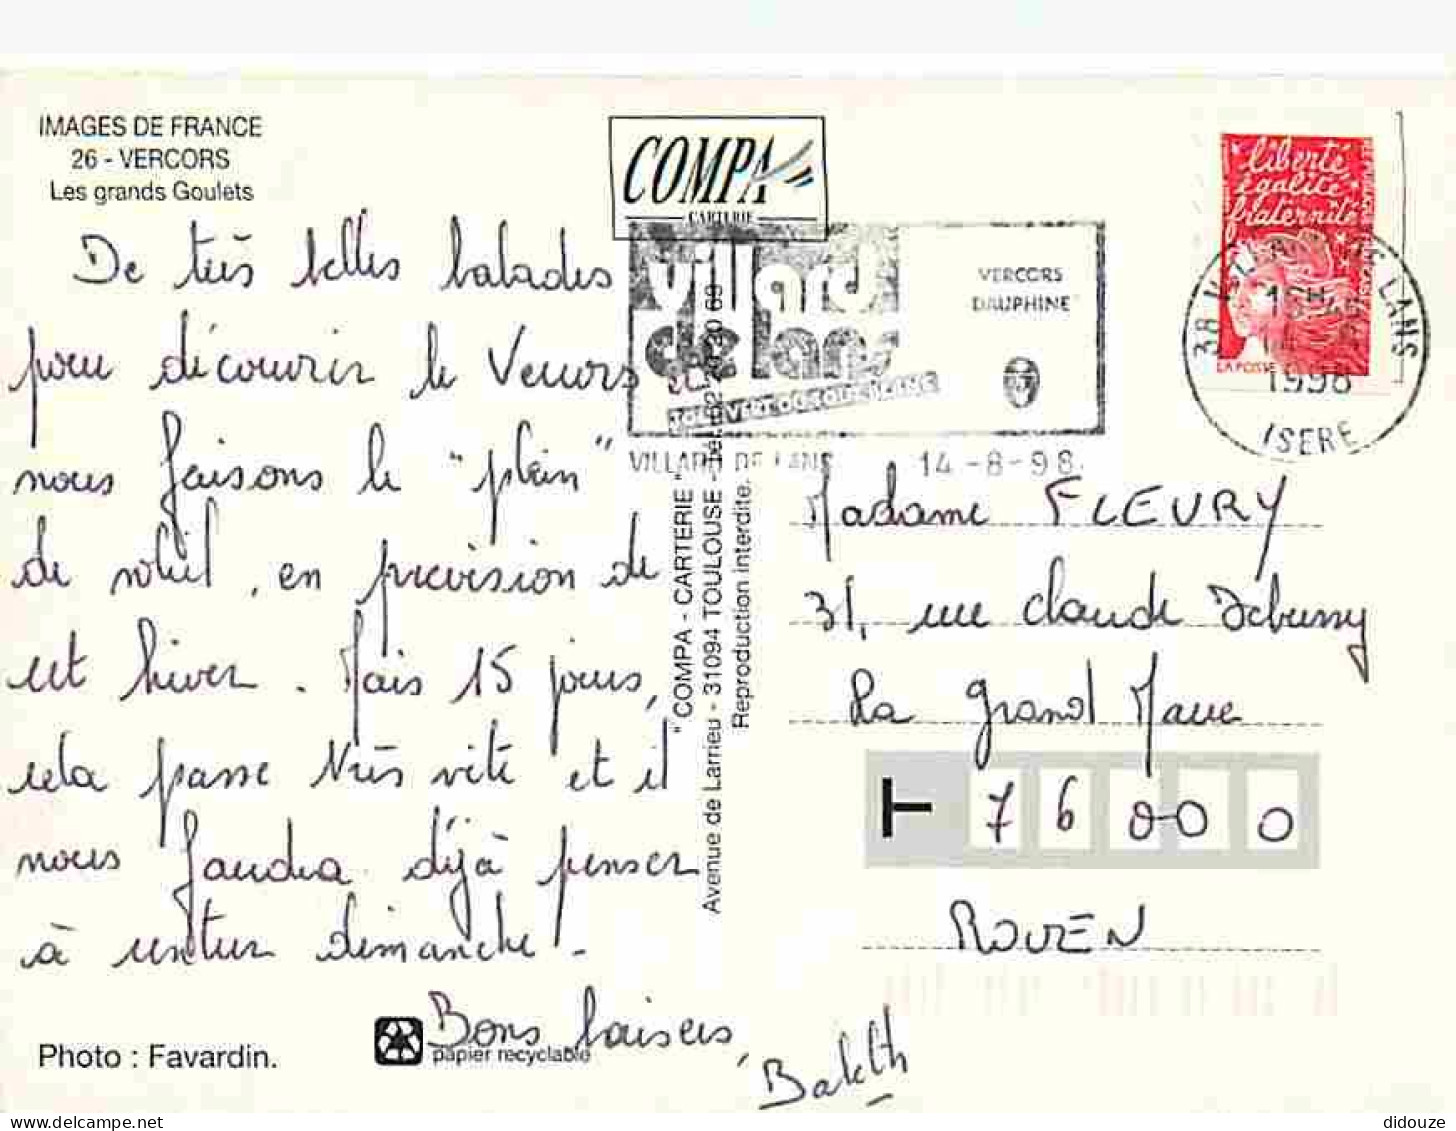 IMAGES DE FRANCE
26 - VERCORS
Les grands Goulets
De très belles balades
pour découvrir le Vercors et
nous faisons le "plein"
de soleil, en prévision de
cet hiver. Mais 15 jours,
cela passe très vite et il
nous faudra déjà penser
à rentrer dimanche.
Bons baisers,
Photo : Favardin.
papier recyclable
COMPA
CARTERIE
Villard
de lans
VERCORS
DAUPHINE
VILLARD DE LANS 14-8-98
"COMPA - CARTERIE"
Avenue de Larrieu - 31094 TOULOUSE
Reproduction interdite.
liberté
égalité
fraternité
LA POSTE
38 VILLARD DE LANS
1998
ISERE
Madame FLEURY
31, rue Claude Debussy
La Grand Mare
76000
ROUEN
delcampe.net
didouze